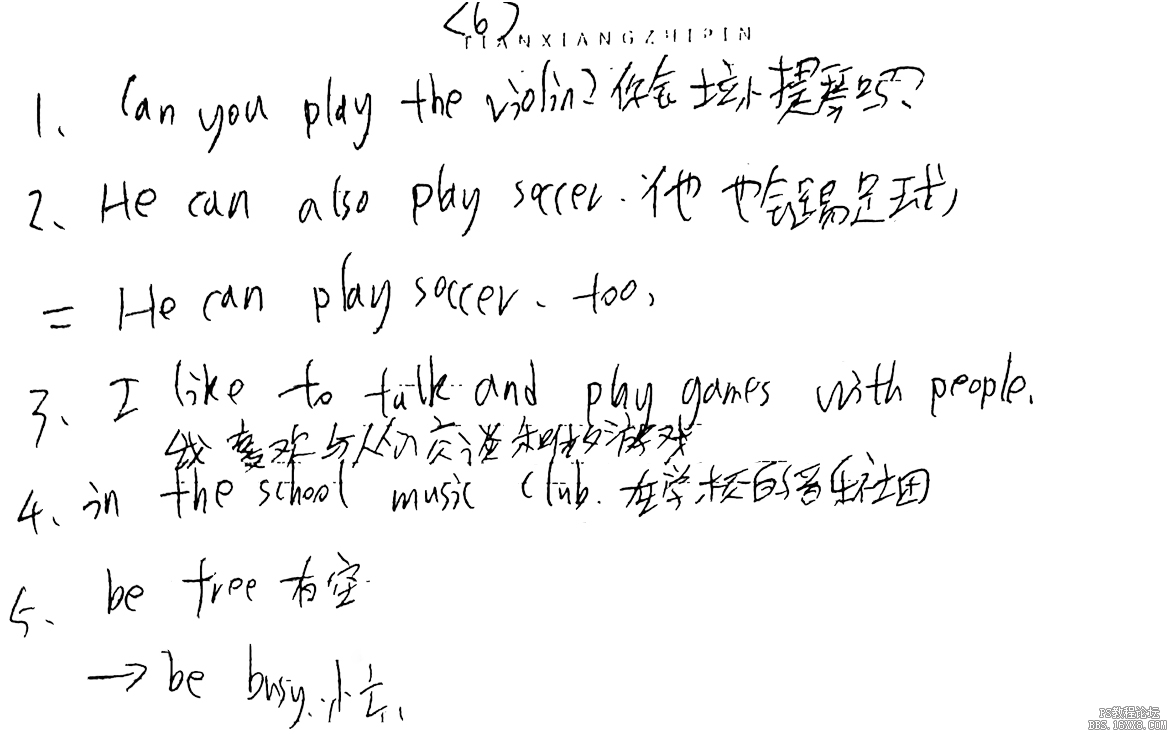 <6>
TIANXIANGZHIPIN
1、Can you play the violin? 你会拉小提琴吗?
2、He can also play soccer. 他也会踢足球
= He can play soccer、too,
3、I like to talk and play games with people.
我喜欢与人们交谈和做游戏
4、in the school music club. 在学校的音乐社团
5、be free 有空
→ be busy. 忙.
PS教程论坛
BBS.16XX8.COM